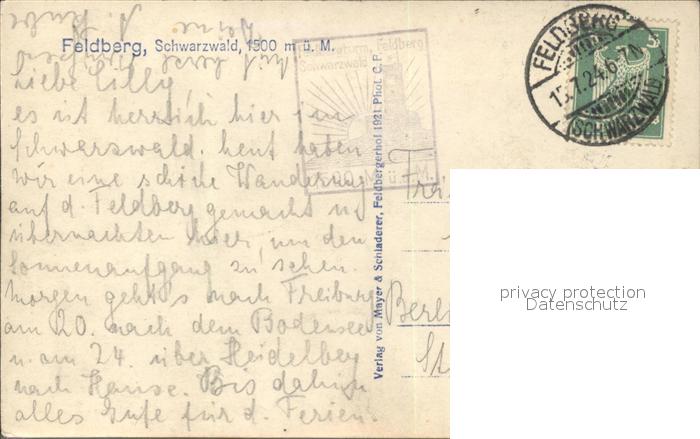 Feldberg, Schwarzwald, 1500 m ü. M.
Feldberg
Schwarzwald
M. ü. M.
FELDBERG
(SCHWARZWALD)
Verlag von Mayer & Schladerer, Feldbergerhof 1921 Phot. C. P.
Liebe Cilly,
es ist herrlich hier im
Schwarzwald. heut haben
wir eine schöne Wanderung
auf d. Feldberg gemacht u.
übernachten hier, um den
Sonnenaufgang zu sehen.
Morgen geht's nach Freiburg
am 20. nach dem Bodensee
u. am 24. über Heidelberg
nach Hause. Bis dahin
alles Gute für d. Ferien.
Berl
privacy protection
Datenschutz